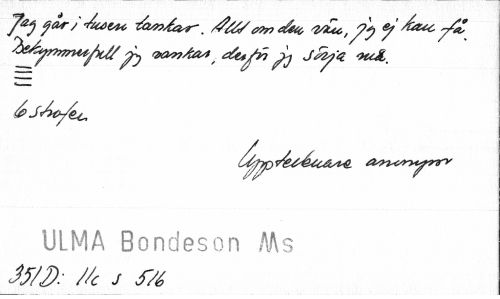 Jag går i tusen tankar. Allt om den vän, jg ej kan få.
Bekymmerfull jg vankar, derför jg sörja må.
6 strofer
Upptecknare anonym
ULMA Bondeson Ms
351D: 11c s 516